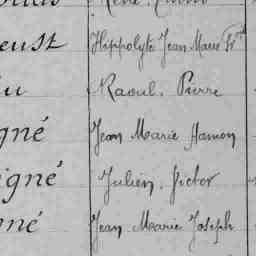 eust Hippolyte Jean Marie Fr
Raoul. Pierre
gné Jean Marie Hamon
igné Julien. Victor
nné Jean Marie Joseph